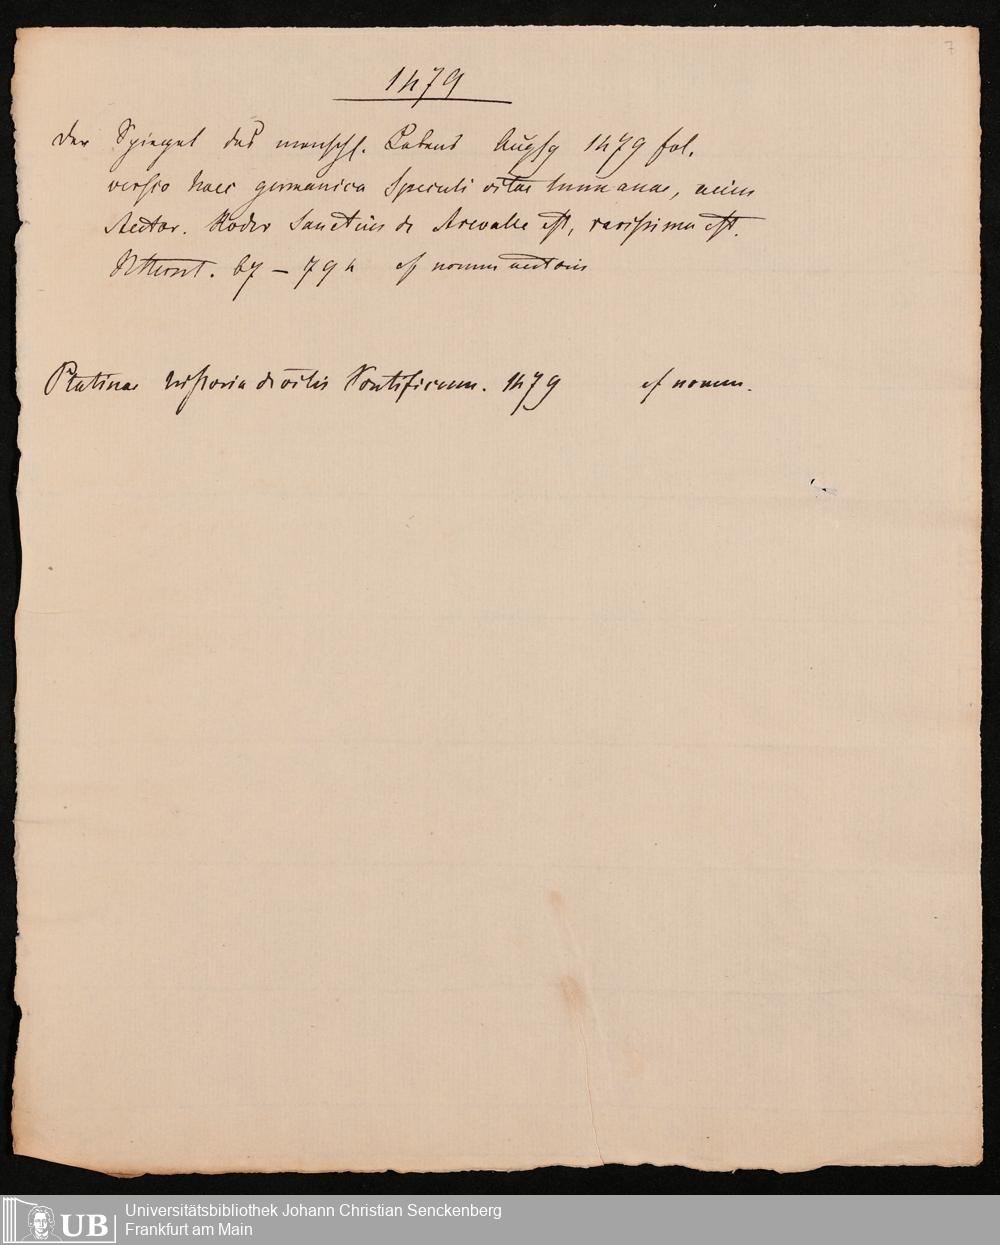 7
1479
Der Spiegel des menschl. Lebens Augsb 1479 fol.
versio haec germanica Speculi vitae humanae, cuius
Auctor. Roder Sanctius de Arevallo est, rarissima est.
67 – 794 cf nomen autoris
Platinae historia de vitis Pontificum. 1479 cf nomen.
Universitätsbibliothek Johann Christian Senckenberg
UB Frankfurt am Main